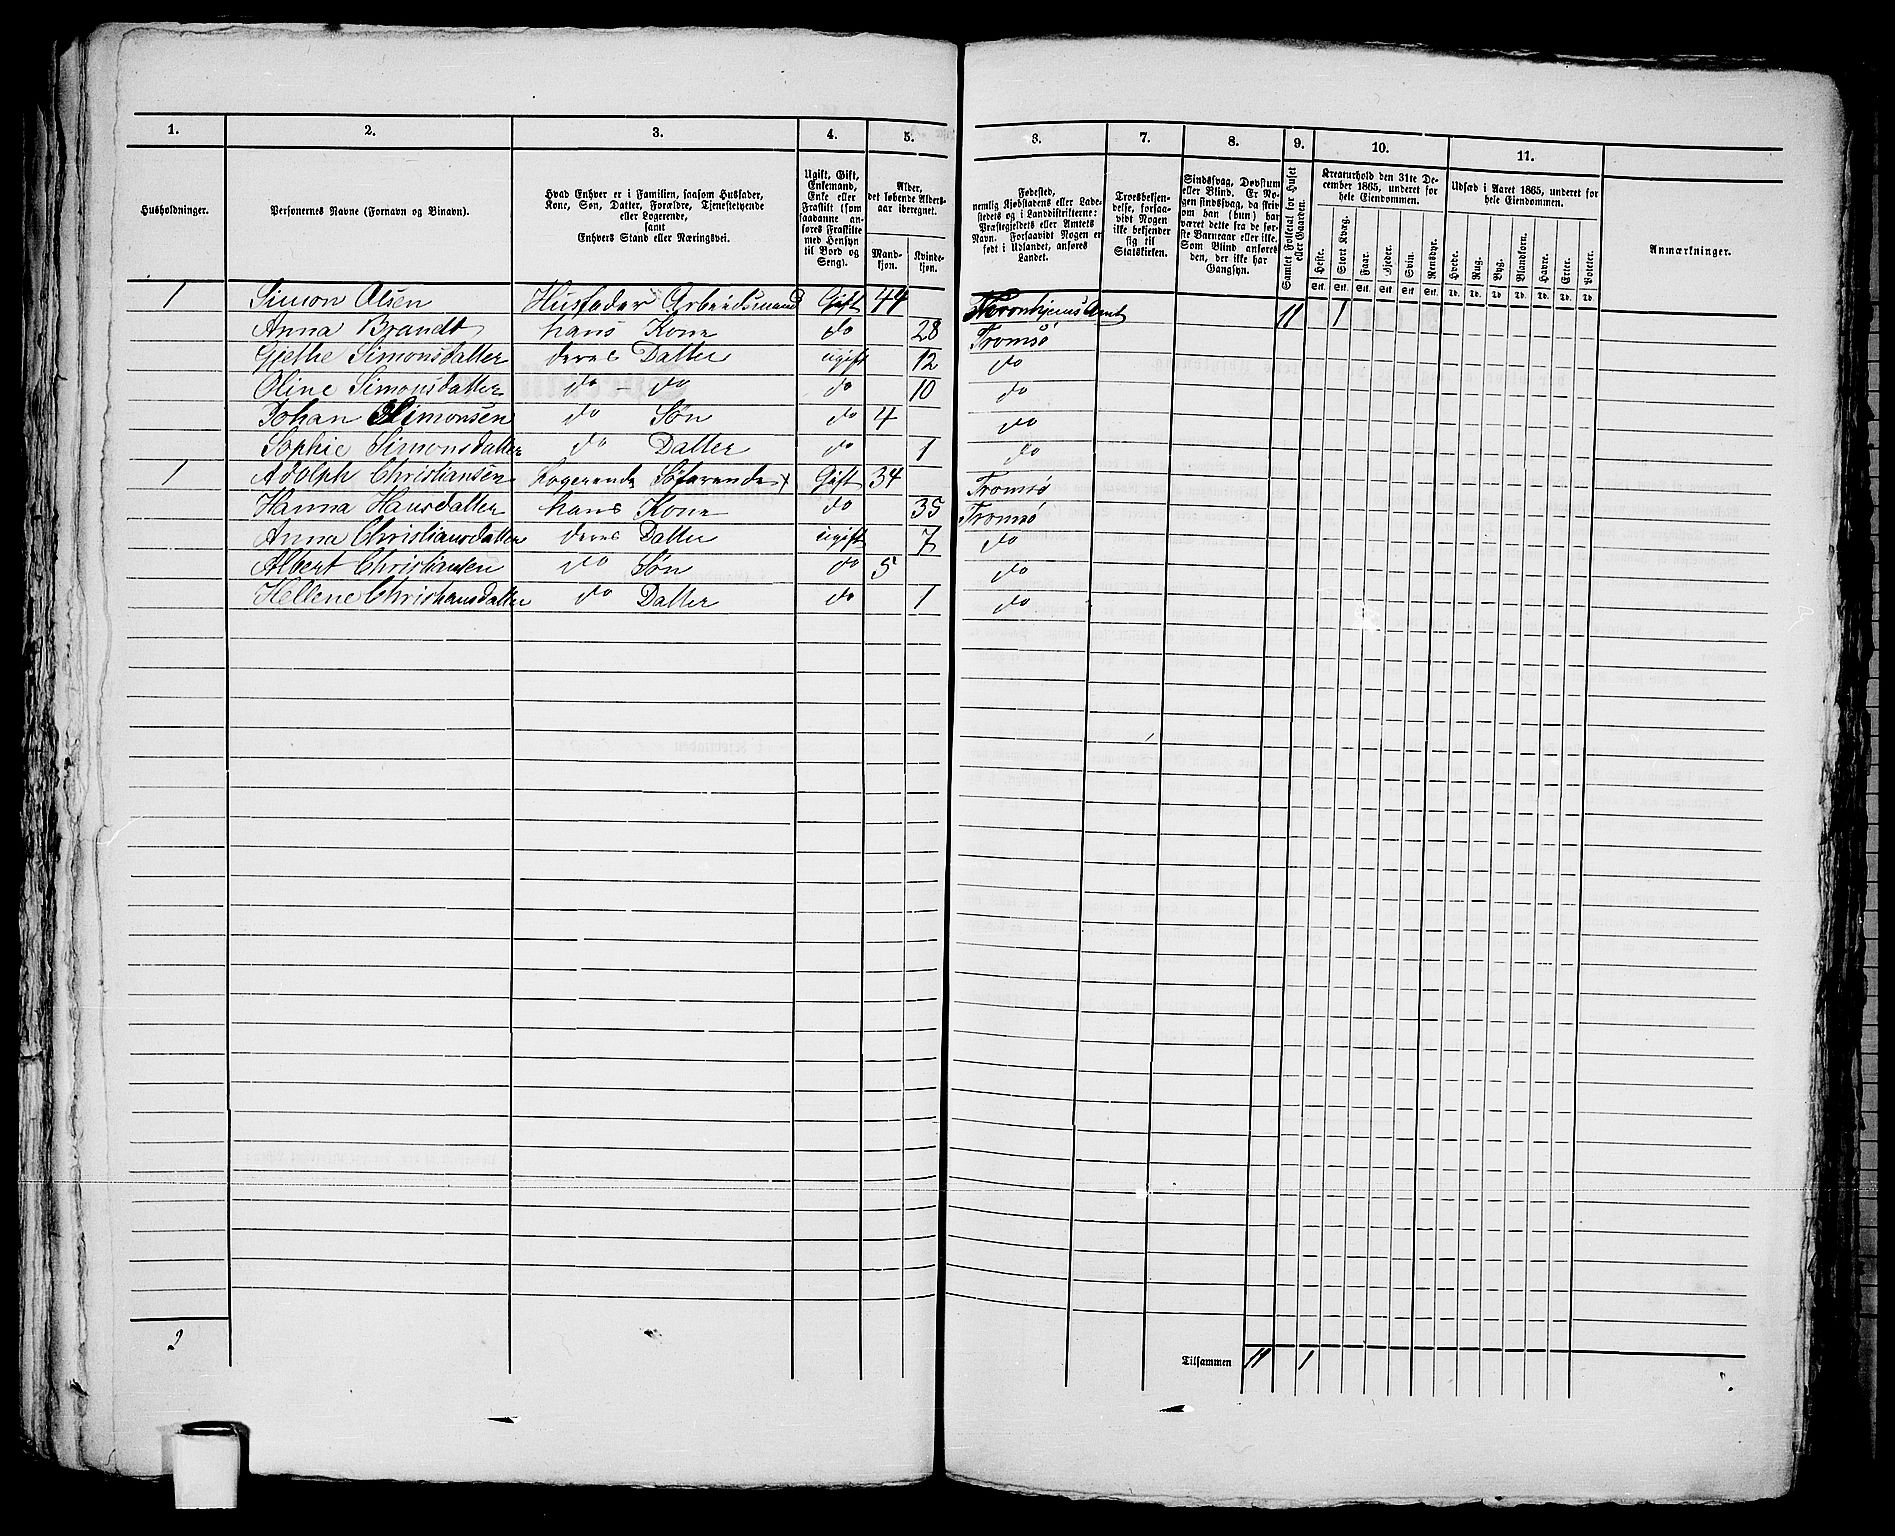 1. 2. 3. 4. 5. 6. 7. 8. 9. 10. 11.
Husholdninger.
Personernes Navne (Fornavn og Binavn).
Hvad Enhver er i Familien, saasom Husfader,
Kone, Søn, Datter, Forældre, Tjenestetyende
eller Logerende,
samt
Enhvers Stand eller Næringsvei.
Ugift, Gift,
Enkemand,
Enke eller
Fraskilt (som
saadanne an-
føres Fraskilte
med Hensyn
til Bord og
Seng).
Alder,
det løbende Alders-
aar iberegnet.
Mand-
kjøn.
Kvinde-
kjøn.
Fødested,
nemlig Kjøbstadens eller Lade-
stedets og i Landdistrikterne:
Præstegjeldets eller Amtets
Navn. Forsaavidt Nogen er
født i Udlandet, anføres
Landet.
Troesbekjen-
delse, forsaa-
vidt Nogen
ikke bekjender
sig til
Statskirken.
Sindssvag, Døvstum
eller Blind. Er No-
gen sindssvag, da skriv
om han (hun) har
været dette fra de før-
ste Barneaar eller ikke.
Som Blind anføres
den, der ikke har
Gangsyn.
Samlet Folketal for Huset
eller Gaarden.
Kreaturhold den 31te De-
cember 1865, underet for
hele Eiendommen.
Heste. Stort Kvæg. Faar. Gjeder. Svin. Rensdyr.
Stk. Stk. Stk. Stk. Stk. Stk.
Udsæd i Aaret 1865, underet for
hele Eiendommen.
Hvede. Rug. Byg. Blandkorn. Havre. Erter. Poteter.
Td. Td. Td. Td. Td. Td. Td.
Anmærkninger.
1 Simon Olsen Husfader Arbeidsmand Gift 44 Thronhjems Amt 11 1
Anna Brandt hans Kone do 28 Tromsø
Gjethe Simonsdatter deres Datter ugift 12 do
Oline Simonsdatter do do do 10 do
Johan Simonsen do Søn do 4 do
Sophie Simonsdatter do Datter do 1 do
1 Adolph Christiansen Logerende Søfarende Gift 34 Tromsø
Hanna Hansdatter hans Kone do 35 Tromsø
Anna Christiansdatter deres Datter ugift 7 do
Albert Christiansen do Søn do 5 do
Hellene Christiansdatter do Datter do 1 do
2
Tilsammen 11 1